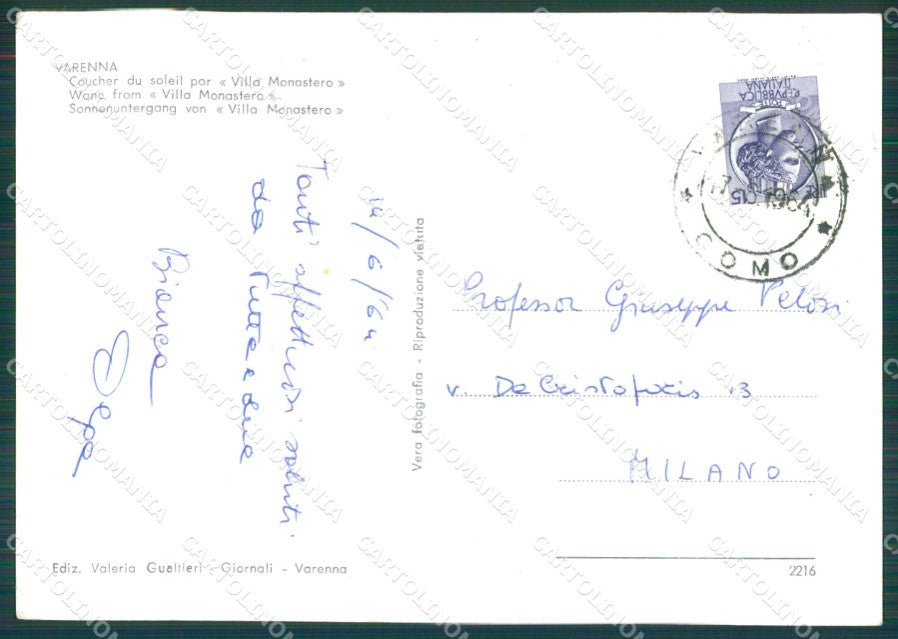 VARENNA
Coucher du soleil par « Villa Monastero »
Wane from « Villa Monastero »
Sonnenuntergang von « Villa Monastero »
14/6/64
Tanti affettuosi saluti
da tutte e due
Bianca
Vera fotografia - Riproduzione vietata
REPVBBLICA
ITALIANA
POSTE
LIRE 15
COMO
Professor Giuseppe Pelosi
v. De Cristoforis 13
MILANO
Ediz. Valeria Gualtieri - Giornali - Varenna
2216
CARTOLINOMANIA